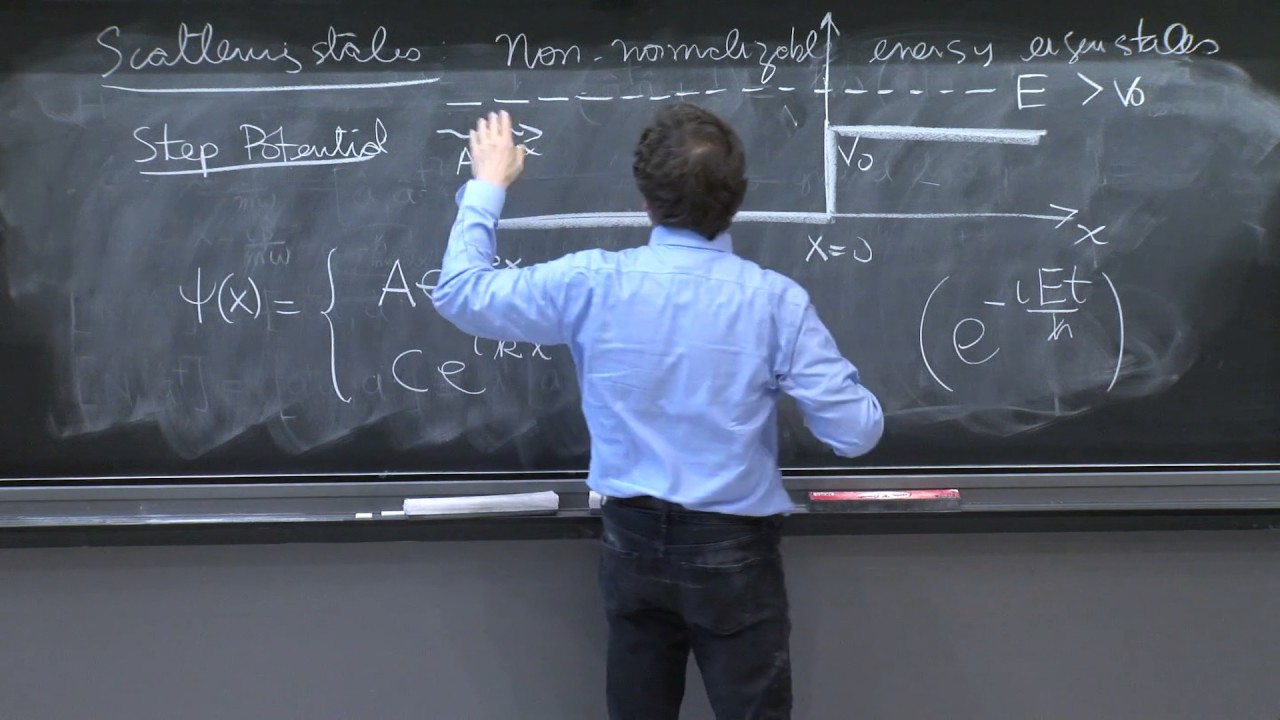 Scattering states: Non-normalizable energy eigenstates
E > V₀
Step Potential
A x
V₀
x
x=0
ψ(x) = { A e x
C e^{ikx}
(e^{-iEt/ħ})